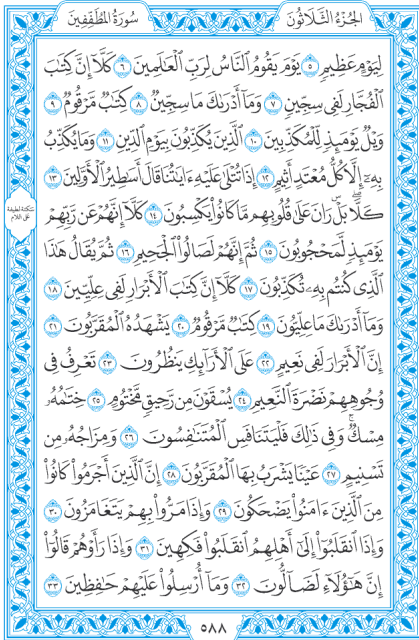 الجُزءُ الثَّلَاثُونَ
سُورَةُ المُطَفِّفِينَ
لِيَوْمٍ عَظِيمٍ ٥ يَوْمَ يَقُومُ ٱلنَّاسُ لِرَبِّ ٱلْعَٰلَمِينَ ٦ كَلَّآ إِنَّ كِتَٰبَ
ٱلْفُجَّارِ لَفِى سِجِّينٍ ٧ وَمَآ أَدْرَىٰكَ مَا سِجِّينٌ ٨ كِتَٰبٌ مَّرْقُومٌ ٩
وَيْلٌ يَوْمَئِذٍ لِّلْمُكَذِّبِينَ ١٠ ٱلَّذِينَ يُكَذِّبُونَ بِيَوْمِ ٱلدِّينِ ١١ وَمَا يُكَذِّبُ
بِهِۦٓ إِلَّا كُلُّ مُعْتَدٍ أَثِيمٍ ١٢ إِذَا تُتْلَىٰ عَلَيْهِ ءَايَٰتُنَا قَالَ أَسَٰطِيرُ ٱلْأَوَّلِينَ ١٣
كَلَّا ۖ بَلْ ۜ رَانَ عَلَىٰ قُلُوبِهِم مَّا كَانُوا۟ يَكْسِبُونَ ١٤ كَلَّآ إِنَّهُمْ عَن رَّبِّهِمْ
يَوْمَئِذٍ لَّمَحْجُوبُونَ ١٥ ثُمَّ إِنَّهُمْ لَصَالُوا۟ ٱلْجَحِيمِ ١٦ ثُمَّ يُقَالُ هَٰذَا
ٱلَّذِى كُنتُم بِهِۦ تُكَذِّبُونَ ١٧ كَلَّآ إِنَّ كِتَٰبَ ٱلْأَبْرَارِ لَفِى عِلِّيِّينَ ١٨
وَمَآ أَدْرَىٰكَ مَا عِلِّيُّونَ ١٩ كِتَٰبٌ مَّرْقُومٌ ٢٠ يَشْهَدُهُ ٱلْمُقَرَّبُونَ ٢١
إِنَّ ٱلْأَبْرَارَ لَفِى نَعِيمٍ ٢٢ عَلَى ٱلْأَرَآئِكِ يَنظُرُونَ ٢٣ تَعْرِفُ فِى
وُجُوهِهِمْ نَضْرَةَ ٱلنَّعِيمِ ٢٤ يُسْقَوْنَ مِن رَّحِيقٍ مَّخْتُومٍ ٢٥ خِتَٰمُهُۥ
مِسْكٌ ۚ وَفِى ذَٰلِكَ فَلْيَتَنَافَسِ ٱلْمُتَنَٰفِسُونَ ٢٦ وَمِزَاجُهُۥ مِن
تَسْنِيمٍ ٢٧ عَيْنًا يَشْرَبُ بِهَا ٱلْمُقَرَّبُونَ ٢٨ إِنَّ ٱلَّذِينَ أَجْرَمُوا۟ كَانُوا۟
مِنَ ٱلَّذِينَ ءَامَنُوا۟ يَضْحَكُونَ ٢٩ وَإِذَا مَرُّوا۟ بِهِمْ يَتَغَامَزُونَ ٣٠
وَإِذَا ٱنقَلَبُوٓا۟ إِلَىٰٓ أَهْلِهِمُ ٱنقَلَبُوا۟ فَكِهِينَ ٣١ وَإِذَا رَأَوْهُمْ قَالُوٓا۟
إِنَّ هَٰٓؤُلَآءِ لَضَآلُّونَ ٣٢ وَمَآ أُرْسِلُوا۟ عَلَيْهِمْ حَٰفِظِينَ ٣٣
٥٨٨